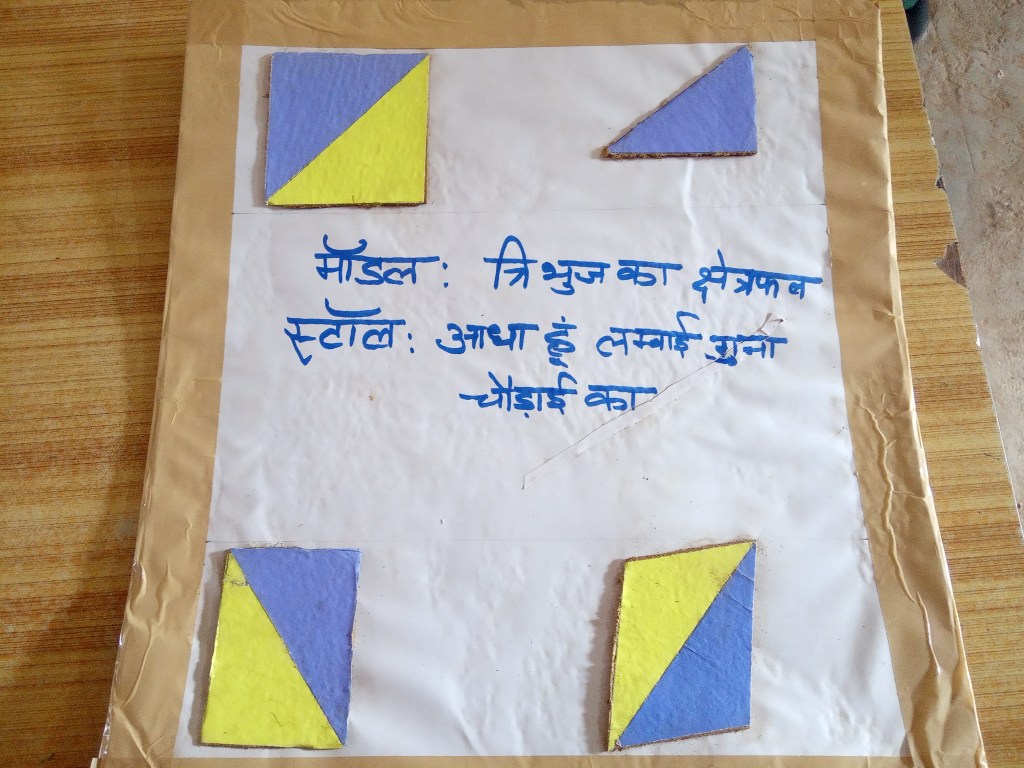 मॉडल: त्रिभुज का क्षेत्रफल
स्टॉल: आधा हूं लम्बाई गुना
चौड़ाई का